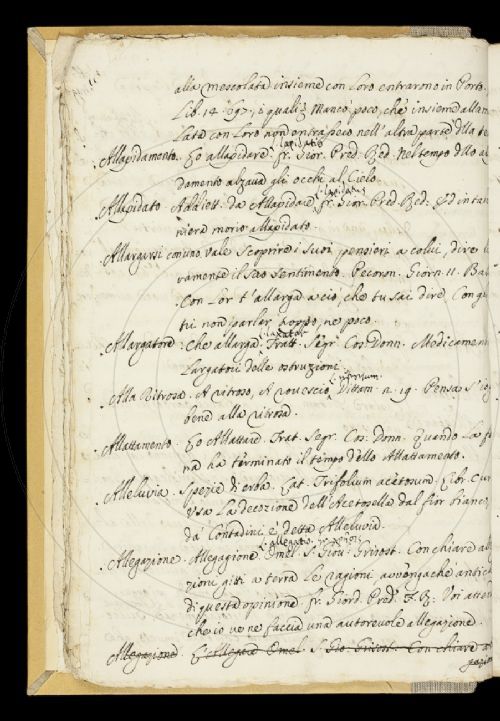 alla mescolata insieme con loro entrarono in Porto.
Lib. 14 i quali manco poco, che insieme alla m
lata con loro non entrasseco nell' altra parte dlla te
L. lapidatio
Allapidamento. Lo allapidare. fr. Gior. Pred. Red. Nel tempo dllo al
damento alzava gli occhi al Cielo.
L. lapidatus
Allapidato Addiett. da Allapidare, fr. Gior. Pred. Red. Ed in tal
niera morio allapidato.
Allargarsi con uno, vale scoprire i suoi pensieri a colui, dire li
vamente il suo sentimento. Pecoron. Giorn. 11. Bal
Con lor t' allarga a ciò, che tu sai dire, Con gli
tu non parlar troppo, ne poco.
L. laxator
Allargatore. Che allarga. Tratt. Segr. Cos. Donn. Medicament
largatori delle ostruzioni
L. inversum
Alla Ritrosa. A ritroso, A rovescio. Dittam. n. 19. Pensa s' io
bene alla ritrosa.
Allattamento. Lo Allattare. Trat. Segr. Cos. Donn. Quando la
na ha terminato il tempo dello Allattamento.
Alleluvia. Spezie di erba. Lat. Trifolium acetosum. Libr. Cur
Usa la decozione dell' Acetosella dal fior bianco,
da' Contadini è detta Alleluvia.
L. allegatio
Allegazione. Allegagione. Omel. S. Giov. Grisost. Con chiare al
zioni gitti a terra le ragioni avvengachè antich
di questa opinione. fr. Giord. Pred. R. Voi asse
che io ve ne faccia una autorevole allegazione.
Allegazione. Omel. S. Gio. Grisost. Con chiare al
gazi